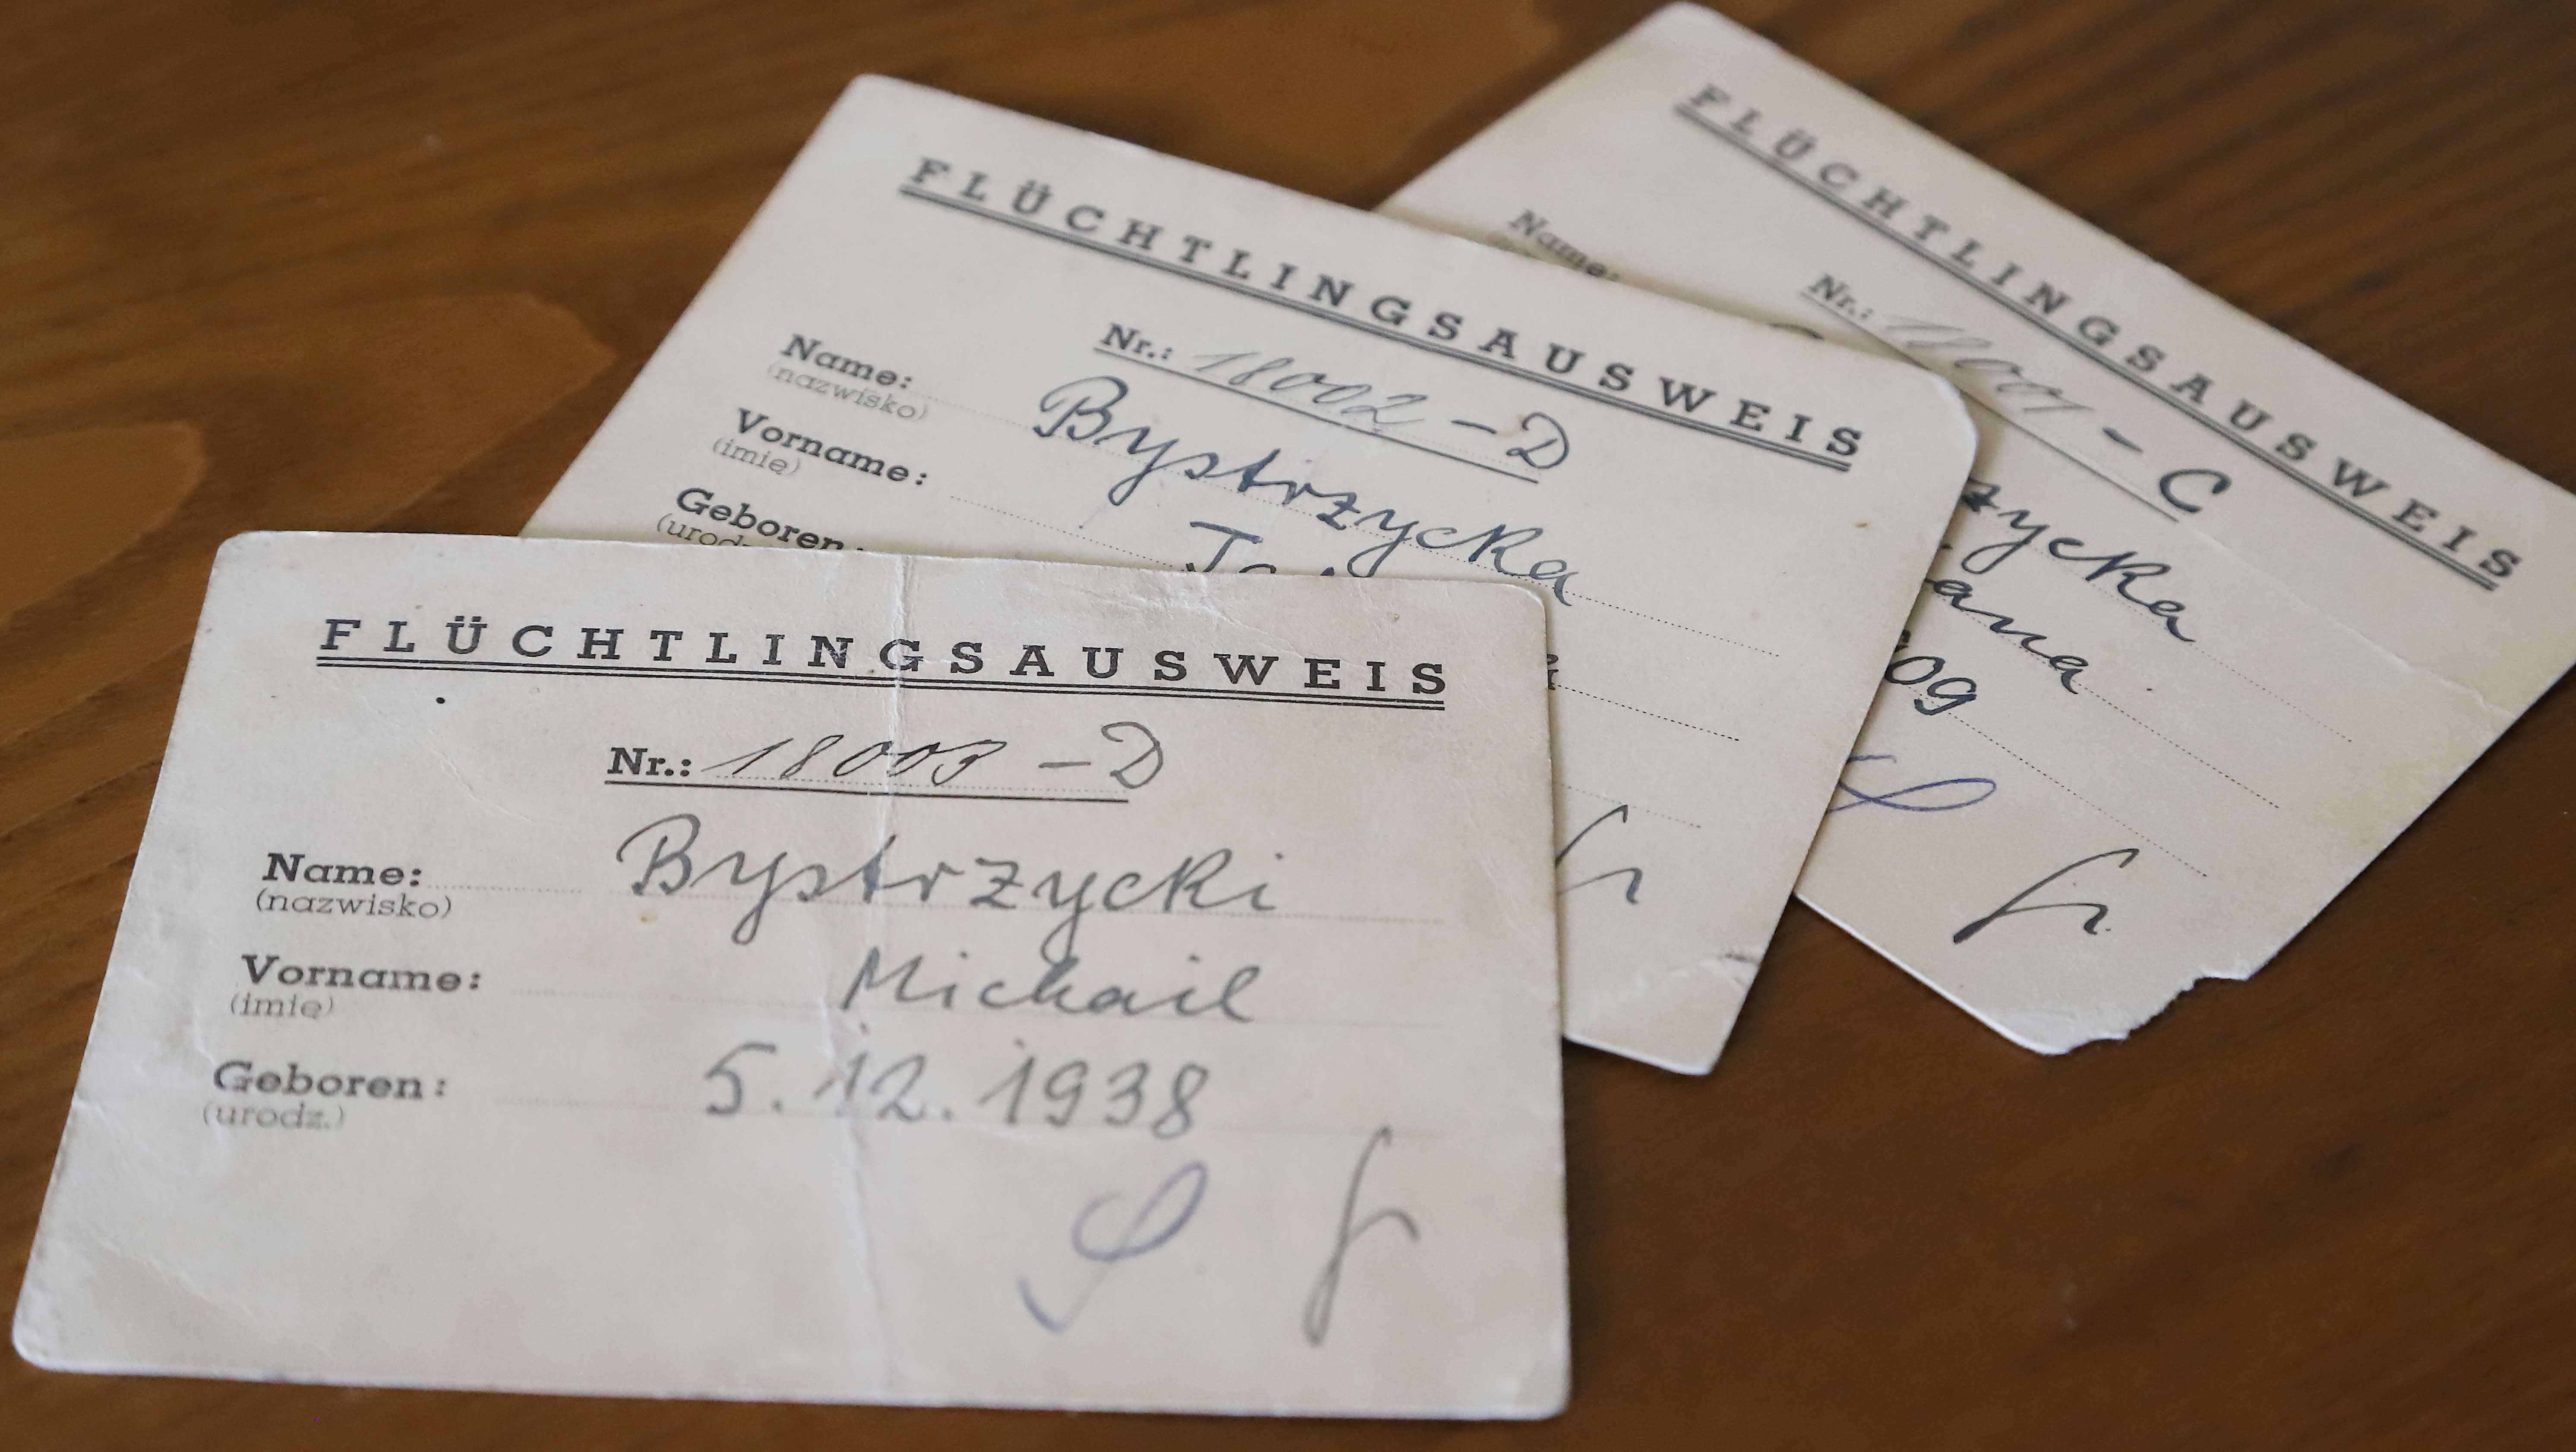 FLÜCHTLINGSAUSWEIS
Nr.: 18003 - D
Name: Bystrzycki
(nazwisko)
Vorname: Michail
(imię)
Geboren: 5.12.1938
(urodz.)
FLÜCHTLINGSAUSWEIS
Nr.: 18002 - D
Name: Bystrzycka
(nazwisko)
Vorname:
(imię)
Geboren:
(urodz
FLÜCHTLINGSAUSWEIS
Nr.: 18001 - C
Name:
zycka
ana
09